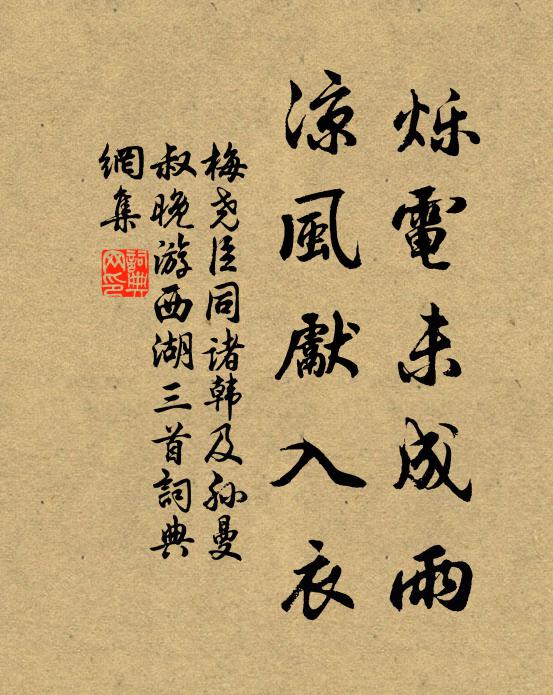 烁電未成雨
涼風獻入衣
梅尧臣同诸韩及孙曼
叔晚游西湖三首詞典
網集
詞典
网印